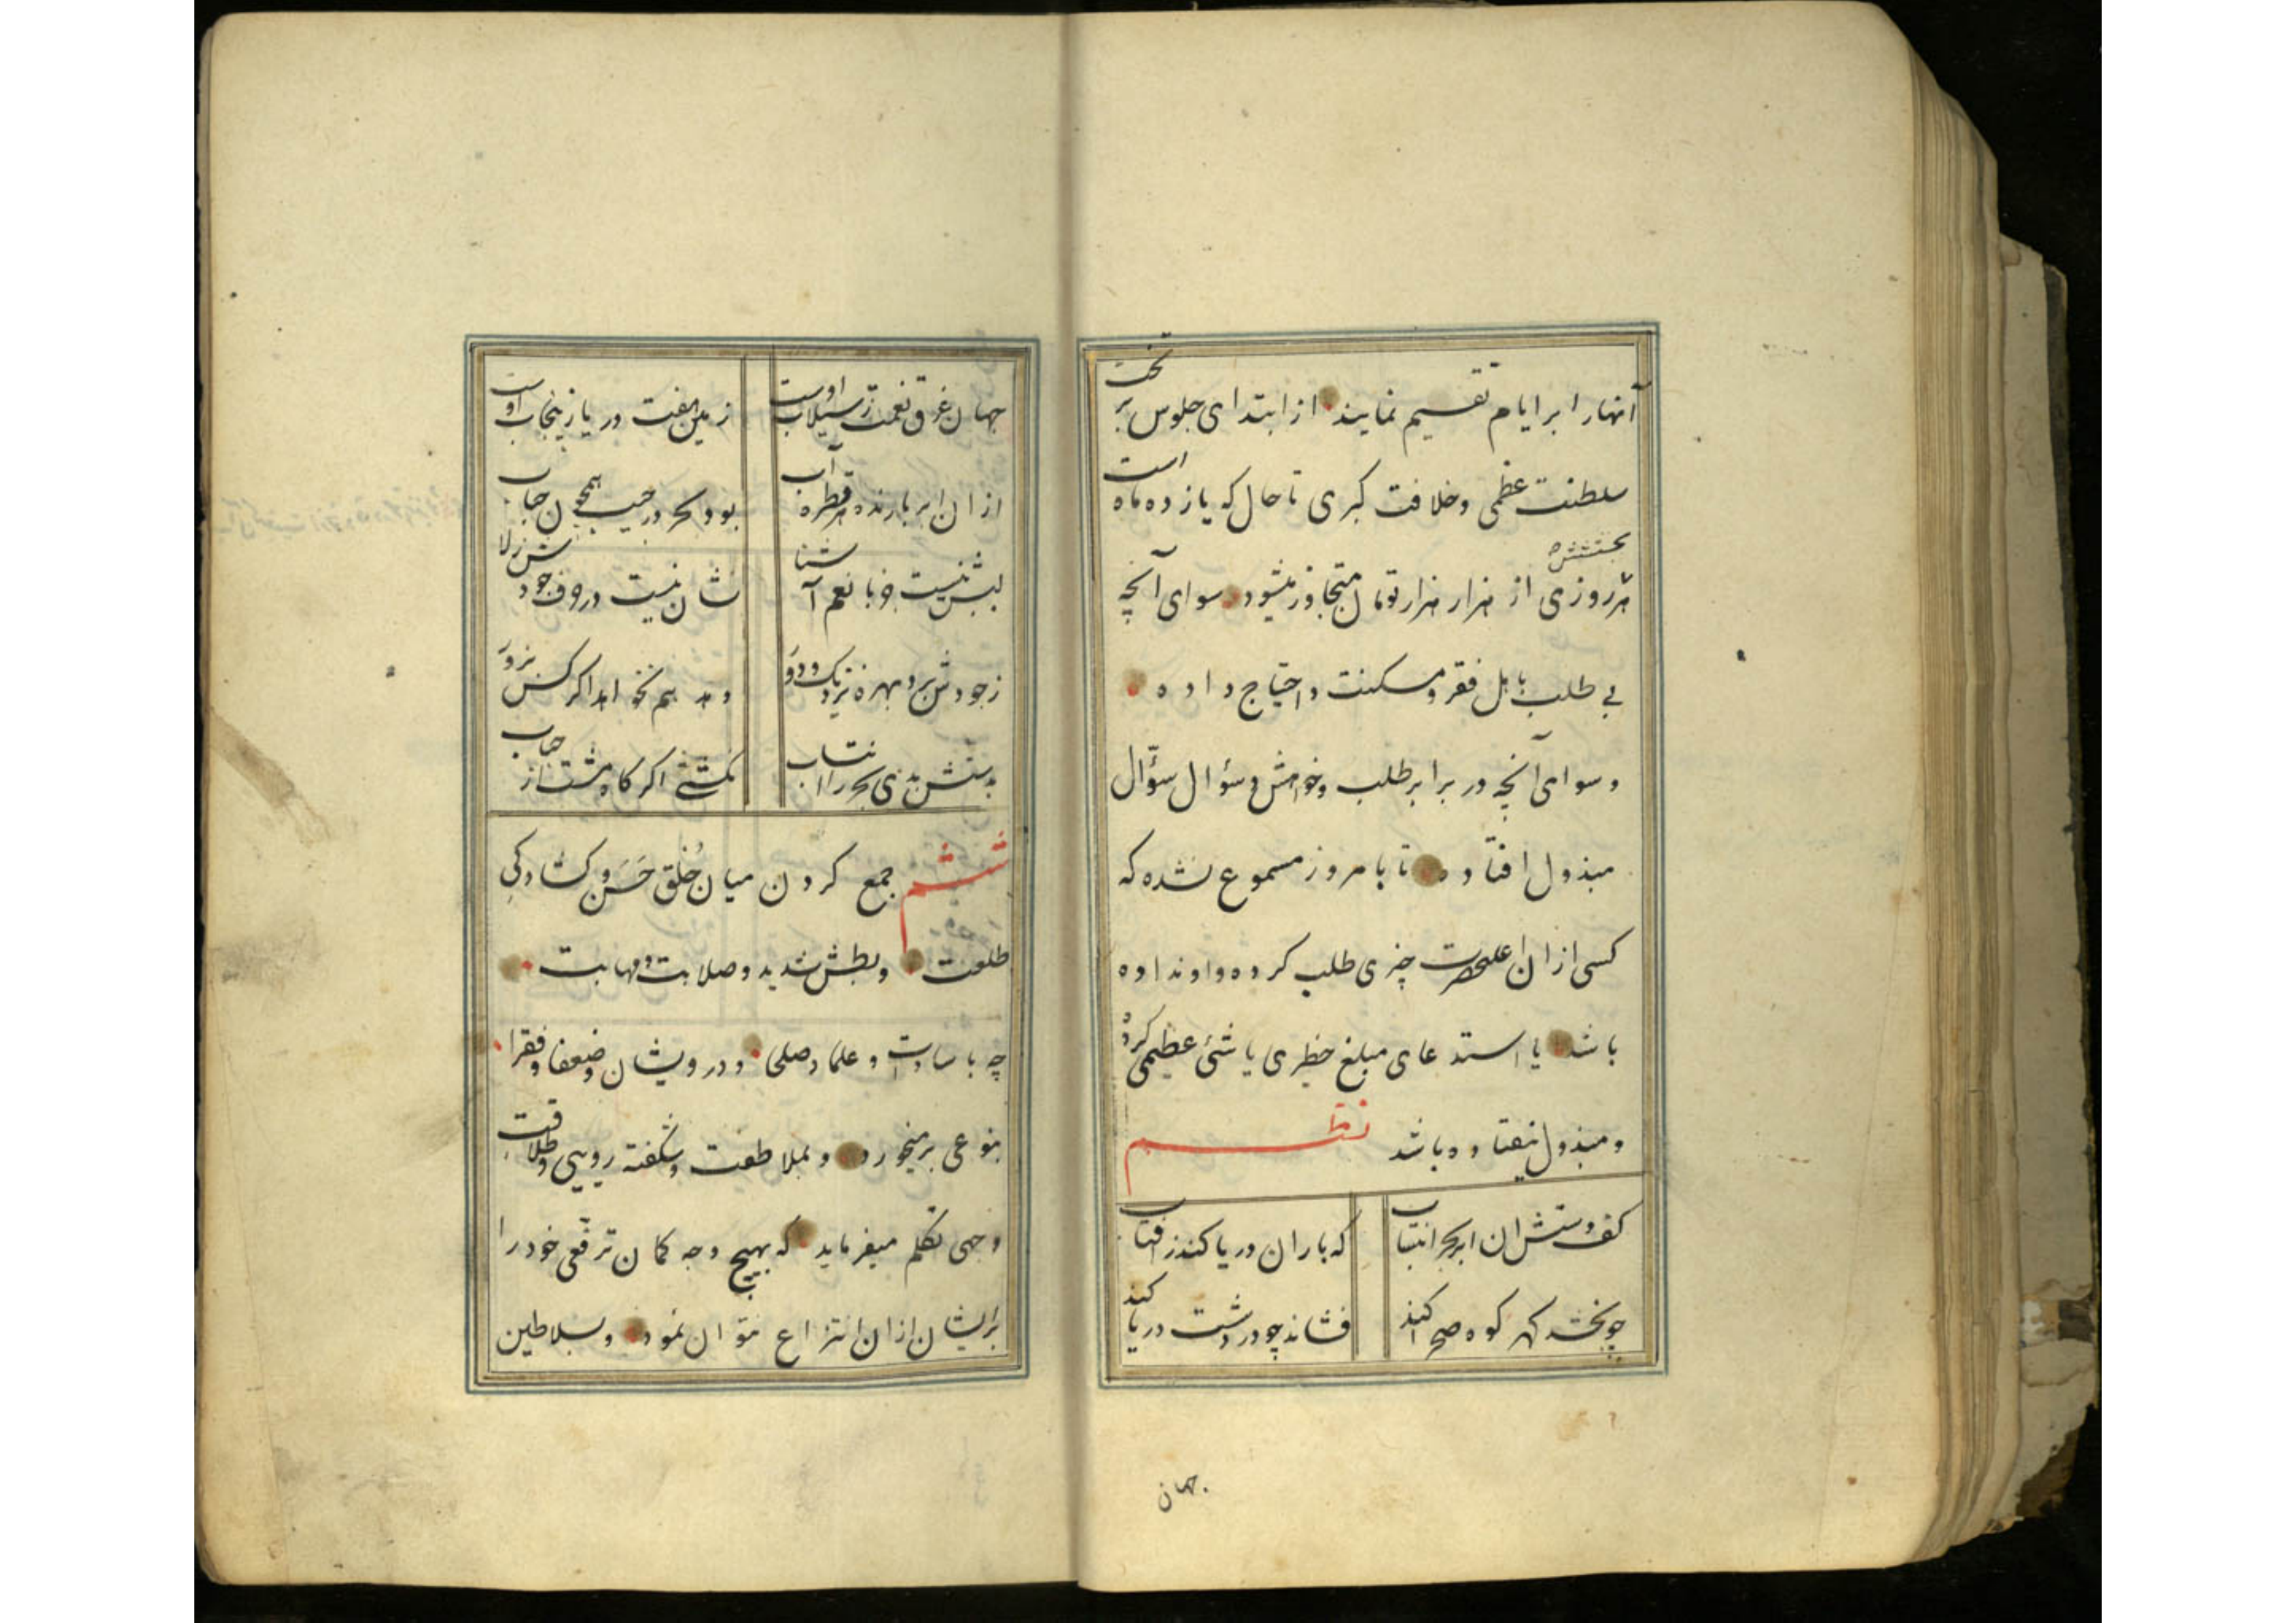 آنها را بر ایام تقسیم نمایند از ابتدای جلوس بر تخت
سلطنت عظمی و خلافت کبری تا حال که یازده ماه است
هر روزی از هزار هزار تومان متجاوز میشود سوای آنچه
بی طلب باهل فقر و مسکنت و احتیاج داده
و سوای آنچه در برابر طلب و خواهش و سؤال سؤّال
مبذول افتاده تا بامروز مسموع نشده که
کسی از ان اعلیحضرت چیزی طلب کرده و او نداده
باشد یا استدعای مبلغ خطیری یا شئ عظیمی کرده
و مبذول نیفتاده باشد نظم
کف دستش ان ابر بحر انتساب
که باران دریا کند ز افتاب
چو بخشد کهر کوه صحرا کند
فشاند چو در دشت دریا کند
جهان
جهان غرق نعمت ز سیلاب اوست
زمین هفت دریا ز پنجاب اوست
از ان ابر بارنده هر قطره آب
بود بحر در جیب همچون حباب
لبش نیست جز با نعم آشنا
نشان نیست در حرف جودش ز لا
ز جودش برد بهره نزدیک و دور
دهد هم نخواهد اکر کس بزور
جمع کردن میان خُلق حَسَن و کشادکی ششم
طلعت و بطش شدید و صلابت و مهابت
چه با سادات و علما و صلحی و درویشان و ضعفا و فقرا
بنوعی برمیخورد و بملاطفت و شکفته رویی و طلاقت
وجهی تکلم میفرماید که بهیچ وجه کمان ترفّعی خود را
بر ایشان از ان انتزاع نتوان نمود و بسلاطین